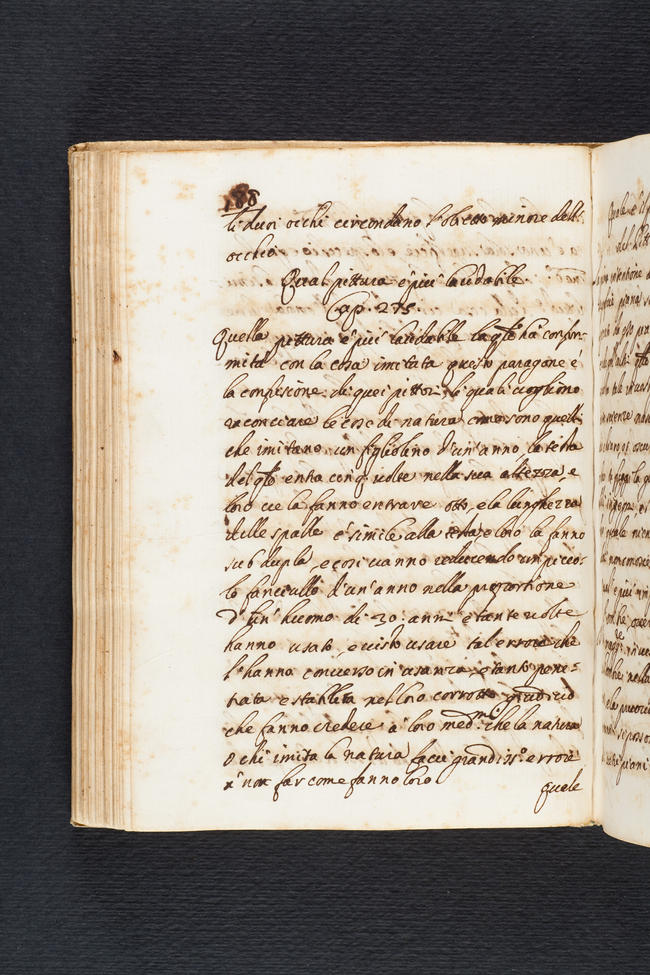 188
ti duoi occhi circondano l'obietto minore dell'
occhio
Qual pittura è più laudabile
Cap. 275.
Quella pittura è più laudabile la qle ha confor-
mità con la cosa imitata questo paragone è
la confusione di quei pittori li quali vogliono
raconciare le cose di natura como sono quelli
che imitano un figliolino d'un'anno la testa
del qle entra cinq. volte nella sua altezza, e
loro ve la fanno entrare otto, e la lunghezza
delle spalle è simile alla testa e loro la fanno
sub dupla, e così vanno reducendo un picco-
lo fanciullo d'un'anno nella proportione
d'un'huomo di 30. anni e tante volte
hanno usato, e visto usare tal errore che
l'hanno converso in usanza, e tanto pene-
trata e stabilita nel loro corrotto giuditio
che fanno credere à loro medmi. che la natura
o chi imita la natura facci grandisso. errore
à non far come fanno loro
quale